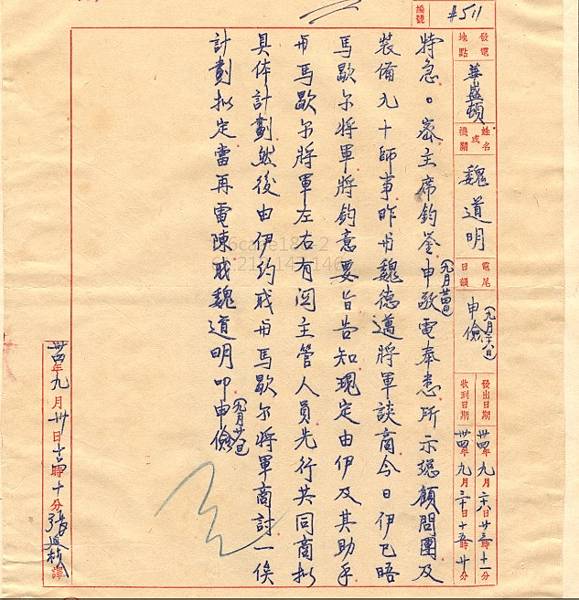 編號 #511
發電地點 華盛頓
姓名或機關 魏道明
電尾日韻 申儉(九月廿八日)
發出日期 卅四年九月廿八日廿三時十一分
收到日期 卅四年九月三十日十五時廿分
特急。密主席鈞鉴申敬(九月廿四日)電奉悉所示認顧問團及
装備九十師事昨毌魏德邁將軍談商今日伊已晤
馬歇尔將軍將鈞意要旨告知現定由伊及其助手
毌馬歇尔將軍左右有関主管人員先行共同商拟
具体計劃然後由伊約職毌馬歇尔將軍商討一俟
計劃拟定當再電陳職魏道明叩申儉(九月廿八日)
卅四年九月卅日十六時十分張 譯